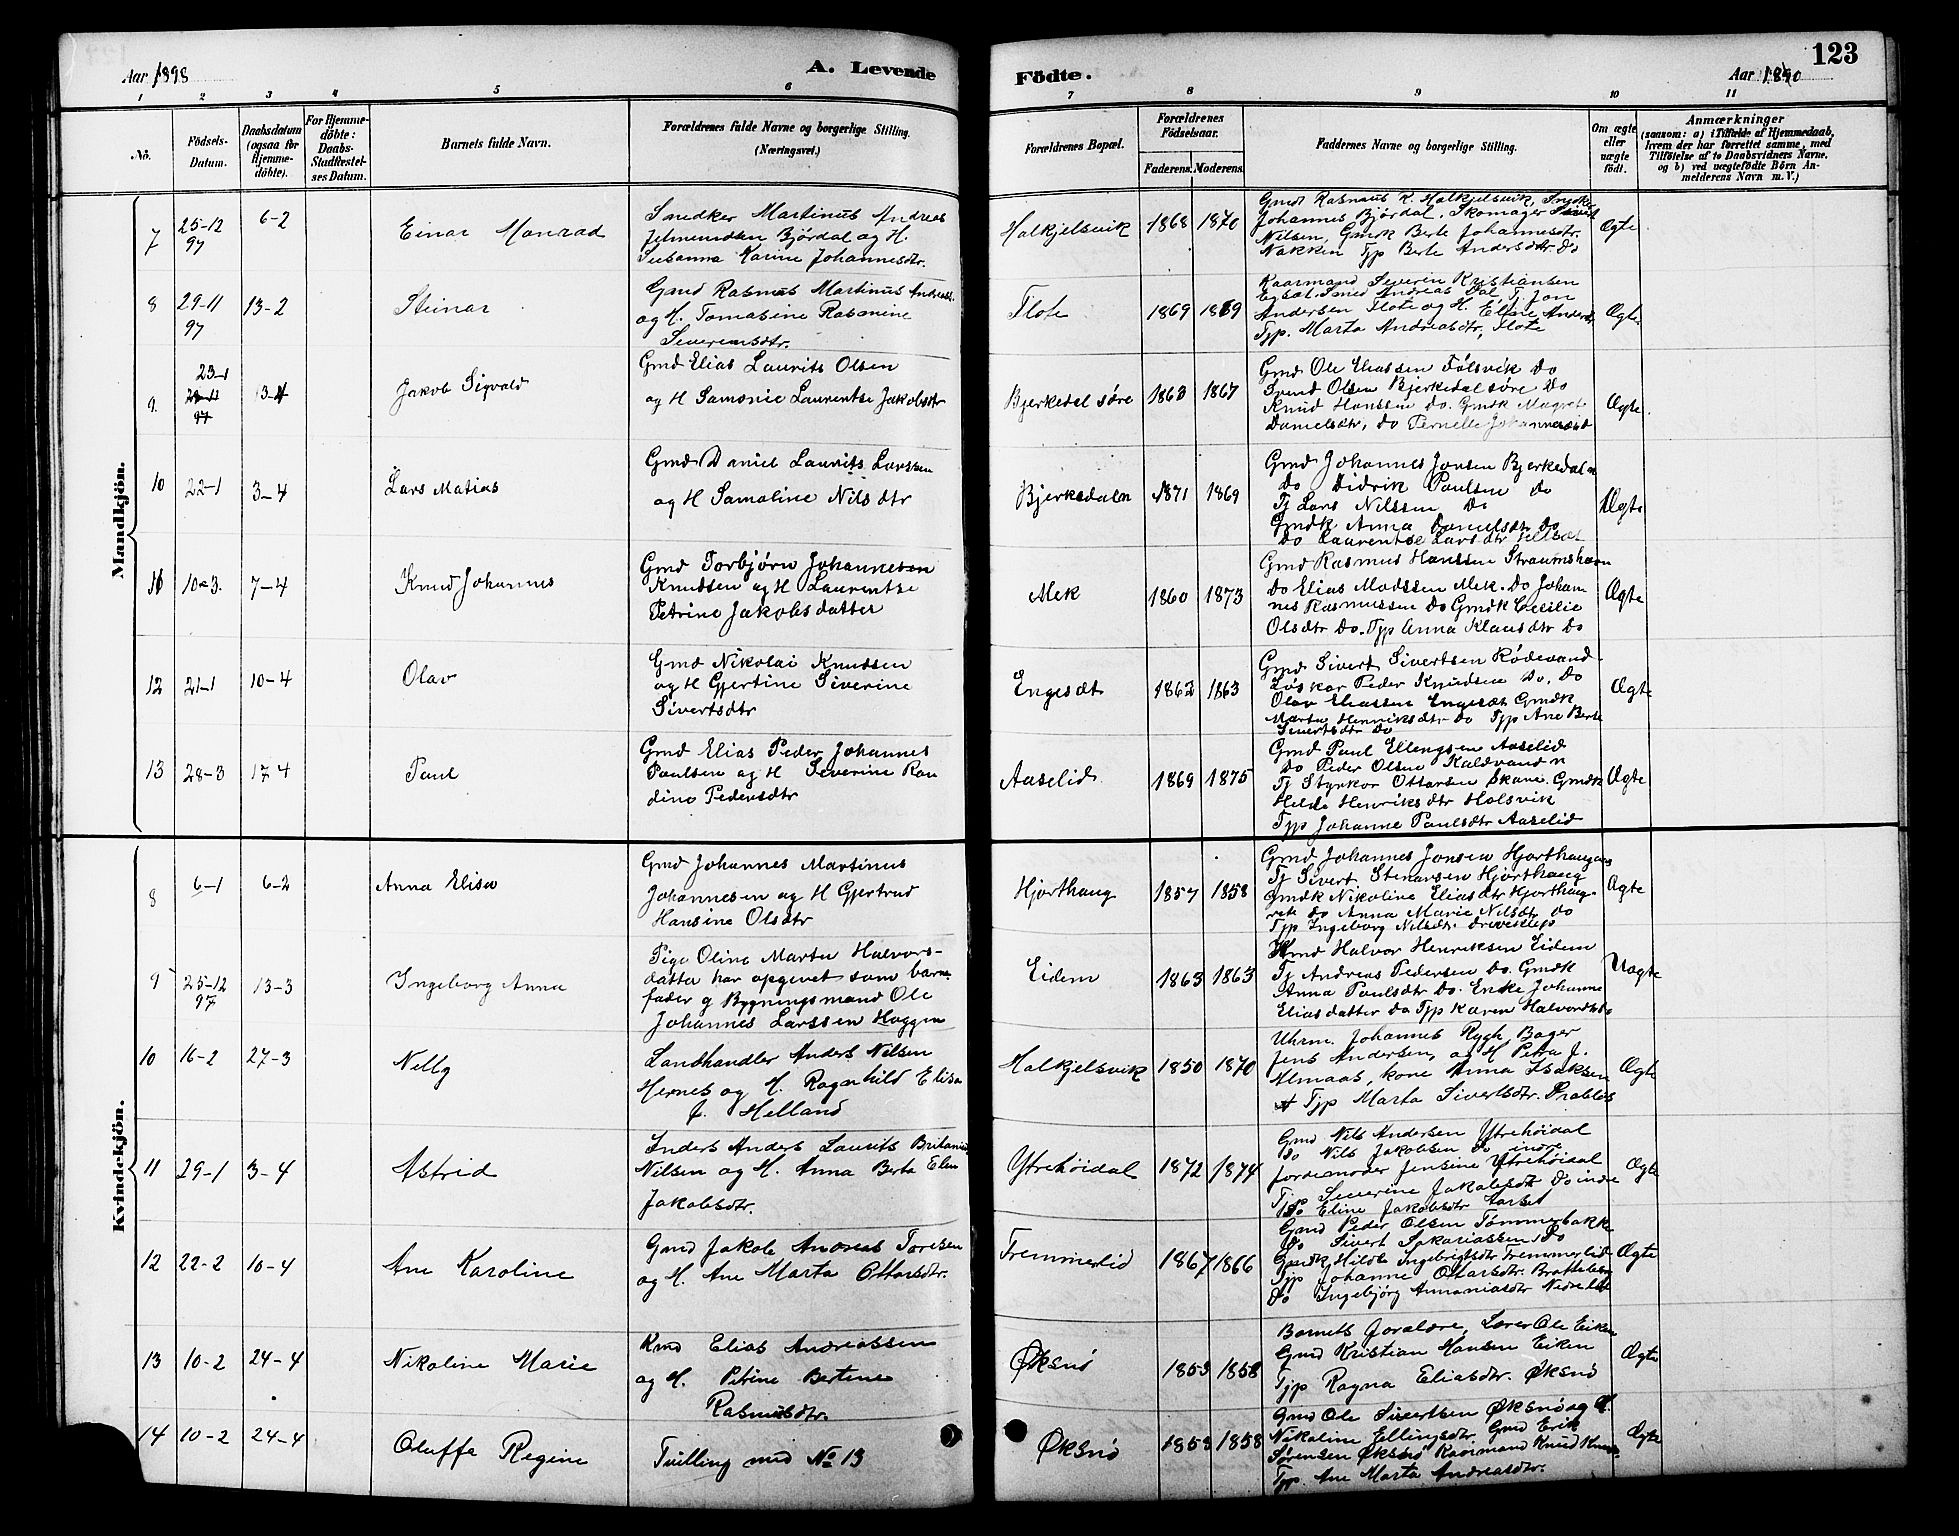 Aar 1898
A. Levende
Födte.
Aar 1890
123
1 2 3 4 5 6 7 8 9 10 11
No.
Födsels-Datum.
Daabsdatum (ogsaa for Hjemmedöbte).
For Hjemmedöbte: Daabs-Stadfæstelses Datum.
Barnets fulde Navn.
Forældrenes fulde Navne og borgerlige Stilling.
(Næringsvei.)
Forældrenes Bopæl.
Forældrenes Födselsaar.
Faderens. Moderens.
Faddernes Navne og borgerlige Stilling.
Om ægte eller uægte födt.
Anmærkninger
(saasom: a) i Tilfælde af Hjemmedaab, hvem der har forrettet samme, med Tilföielse af to Daabsvidners Navne, og b) ved uægtefödte Börn Anmelderens Navn m. V.)
Mandkjön.
7 25-12 97 6-2 Einar Monrad
Snedker Martinus Andreas
Jetmundsen Bjørdal og H.
Susanna Karine Johannesdtr.
Halkjelsvik 1868 1870
Gmd Rasmus K. Halkjelsvik, Snedker
Johannes Bjørdal. Skomager Sivert
Nilsen, Gmdk Berte Johannesdtr.
Nakken Tjp Berte Andersdtr Do
Ægte
8 29-11 97 13-2 Steinar
Gmd Rasmus Martinus Andreass.
og H. Tomasine Rasmine
Severensdtr.
Flote 1869 1869
Kaarmand Severin Kristiansen
Engset. Smed Andreas Dal, Tj. Jon
Andersen Flote og H. Eline Andersdtr
Tjp. Marta Andreasdtr, Flote
Ægte
9. 23-1 13-4 Jakob Sigvald
Gmd Elias Laurits Olsen
og H Samonie Laurentse Jakobsdtr
Bjerkedal søre 1863 1867
Gmd Ole Eliassen Følsvik Do
Svend Olsen Bjerkedal søre Do
Knud Hanssen do. Gmdk Magret
Danielsdtr, do Pernelle Johannesdtr
Ægte.
10 22-1 3-4 Lars Matias
Gmd Daniel Laurits Larssen
og H Samoline Nils dtr
Bjerkedaln 1871 1869
Gmd Johannes Jonsen Bjerkedaln
do Didrik Paulsen do
Tj Lars Nilssen Do
Gmdk Anna Danielsdtr Do
Do Laurentse Lars dtr
Ægte
11 10-3. 7-4 Knud Johannes
Gmd Torbjørn Johannesen
Knudsen og H Laurentse
Petrine Jakobsdatter
Mek 1860 1873
Gmd Rasmus Hanssen Straumshavn
do Elias Madssen Mek. do Johan
nes Rasmussen do Gmdk Cecilie
Olsdtr Do. Tjp Anna Klausdtr Do
Ægte
12 21-1 10-4 Olav
Gmd Nikolai Knudsen
og H Gjertine Siverine
Sivertsdtr
Engesæt 1862 1863
Gmd Sivert Sivertsen Rødevand.
Løskar Peder Knudsen do. Do
Olav Eliassen Engesæt Gmdk
Marta Henriksdtr do Tjp Ane Berte
Sivertsdtr do
Ægte
13 28-3 17-4 Paul
Gmd Elias Peder Johannes
Paulsen og H Severine Ran
dine Pedersdtr
Aaselid 1869 1875
Gmd Paul Ellengsen Aaselid
Do Peder Olsen Kaldvand n
Tj Styrkor Ottarsen Skare. Gmdk
Hilda Henriksdtr Holsvik
Tjp Johanne Paulsdtr Aaselid
Ægte
Kvindekjön.
8 6-1 6-2 Anna Elisa
Gmd Johannes Martinus
Johannesen og H Gjertrud
Hansine Olsdtr
Hjorthaug 1857 1858
Gmd Johannes Jonsen Hjorthaugen
Tj Sivert Stenarsen Hjorthaug
Gmdk Nikoline Eliasdtr Hjorthaug-
do Anna Marie Nilsdtr. do
Tjp Ingeborg Nilsdtr. Driveklep
Ægte
9 25-12 97 13-3 Ingeborg Anna
Pige Oline Marta Halvors-
datter har opgivet som barne
fader g Bygningsmand Ole
Johannes Larssen Haggen
Eidem 1863 1863
Gmd Halvor Henriksen Eidem
Tj Andreas Pedersen do. Gmdk
Anna Paulsdtr Do. Enke Johanne
Eliasdatter do Tjp Karen Halvorsdtr do
Uægte
10 16-2 27-3 Nelly
Landhandler Anders Nilsen
Hernes og H. Ragnhild Elisa
J. Helland
Halkjelsvik 1850 1870
Uhrm. Johannes Rygh, Bager
Jens Andersen, og H Petra J.
Almaas, kone Anna Isaksen
Tjp Marta Sivertsdtr.
Ægte
11 29-1 3-4 Astrid
Inders Anders Laurits
Nilsen og H. Anna Berta Elen
Jakobsdtr.
Ytrehøidal 1872 1874
Gmd Nils Andersen Ytrehöidal
Do Nils Jakobsen Do indre
Jordemoder Jensine Ytrehöidal
Tjp Severine Jakobsdtr Do indre
Do Eline Jakobsdtr Aarset
Ægte
12 22-2 10-4 Ane Karoline
Gmd Jakob Andreas Toresen
og H. Ane Marta Ottarsdtr.
Fremmerlid 1867 1866
Gmd Peder Olsen Tømmerbakk
Do Sivert Sakariassen, Do
Gmdk Hilda Ingebrigtsdtr Fremmerlid
Tjp Johanne Ottarsdtr.
Do Ingebjørg Annaniasdtr
Ægte
13 10-2 24-4 Nikoline Marie
Kmd Elias Andreassen
og H. Petrine Bertine
Rasmusdtr.
Øksnø 1853 1858
Barnets Forældre, Lærer Ole Eiken
Gmd Kristian Hansen Eiken
Tjp Ragna Eliasdtr. Øksnø
Ægte
14 10-2 24-4 Oluffa Regine
Tvilling med № 13
Øksnø 1853 1858
Gmd Ole Sivertsen Øksnø og H.
Nikoline Ellingsdtr. Gmd Erik
Sørensen Øksnø Kaarmand Knud
Tjp. Ane Marta Andreasdtr.
Ægte